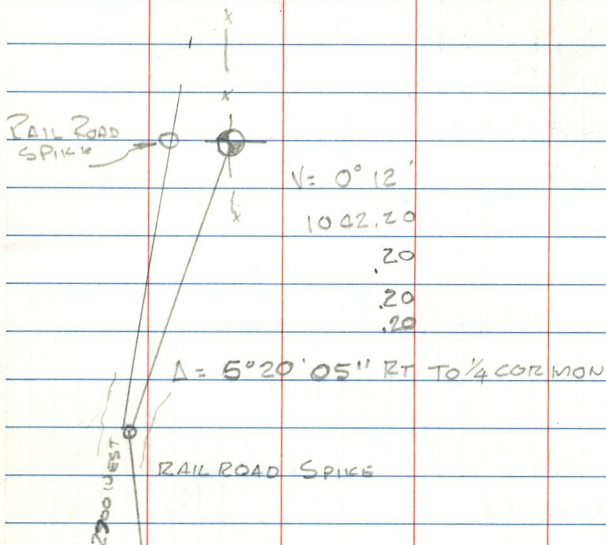 RAIL ROAD
SPIKE
V= 0° 12'
1042.20
.20
.20
.20
Δ= 5°20'05" RT TO 1/4 COR MON
RAILROAD SPIKE
2900 WEST